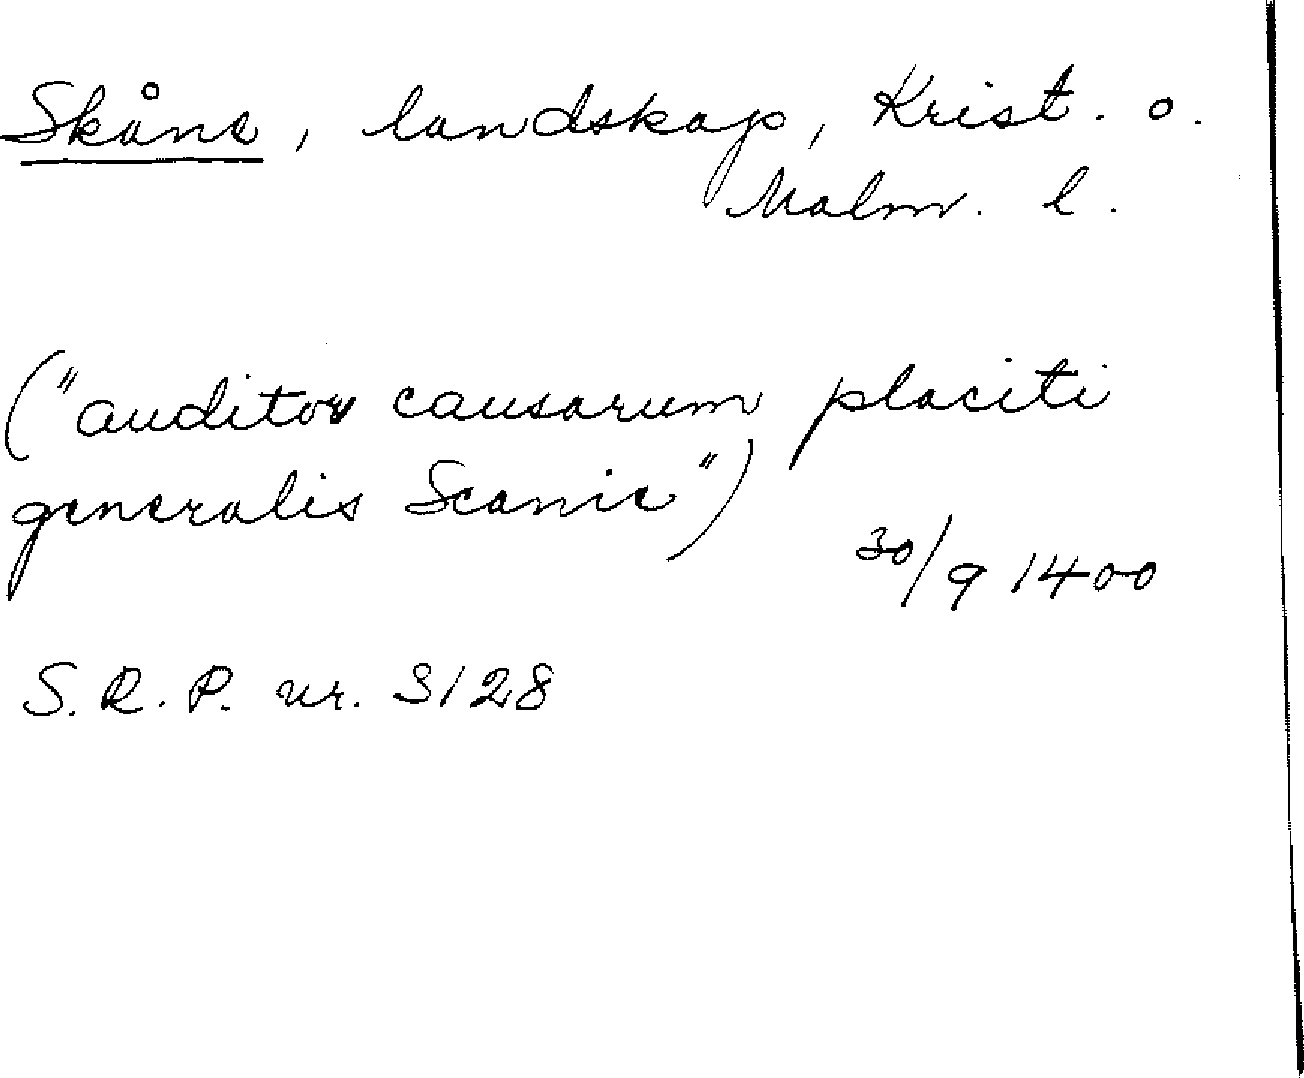 Skåne, landskap, Krist. o.
Malm. l.
("auditor causarum placiti
generalis Scanie")
30/9 1400
S.R.P. nr. 3128